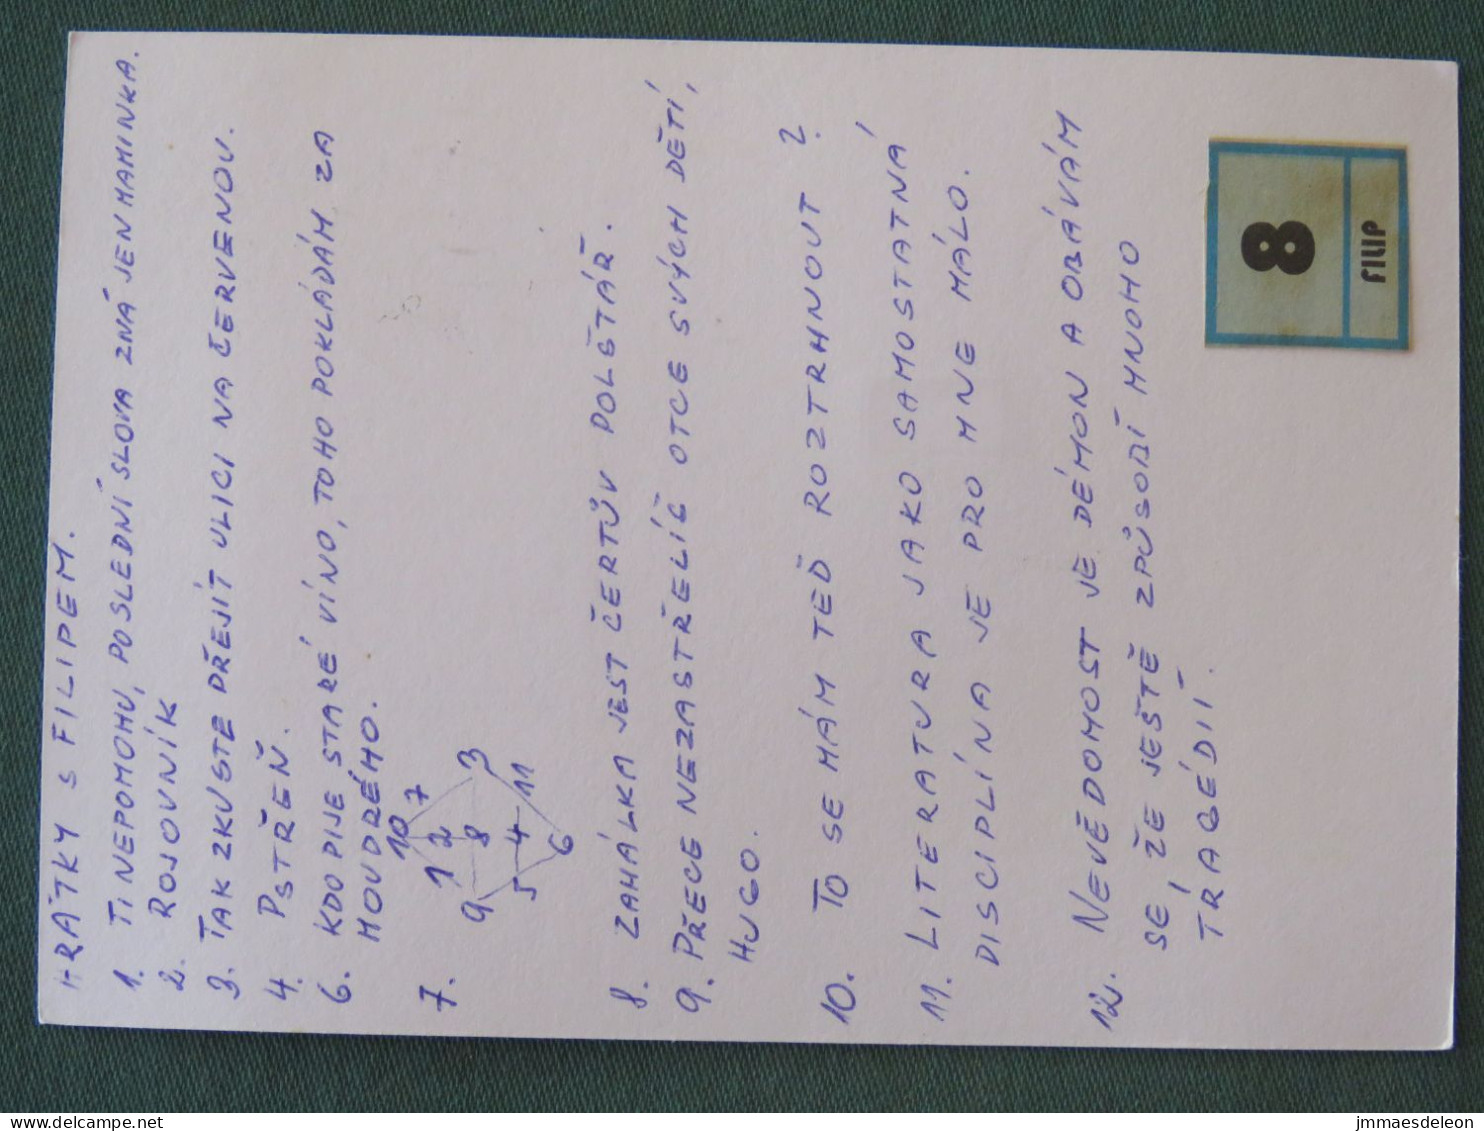 HRÁTKY S FILIPEM.
1. TI NEPOMOHU, POSLEDNÍ SLOVA ZNÁ JEN MAMINKA.
2. ROJOVNÍK
3. TAK ZKUSTE PŘEJÍT ULICI NA ČERVENOU.
4. PSTŘEŇ.
6. KDO PIJE STARÉ VÍNO, TOHO POKLÁDÁM ZA
MOUDRÉHO.
7.
10 7
1 2 3
9 8
5 4 11
6
8. ZAHÁLKA JEST ČERTŮV POLŠTÁŘ.
9. PŘECE NEZASTŘELÍŠ OTCE SVÝCH DĚTÍ,
HUGO.
10. TO SE MÁM TEĎ ROZTRHNOUT ?
11. LITERATURA JAKO SAMOSTATNÁ
DISCIPLÍNA JE PRO MNE MÁLO.
12. NEVĚDOMOST JE DÉMON A OBÁVÁM
SE, ŽE JEŠTĚ ZPŮSOBÍ MNOHO
TRAGÉDIÍ.
8
FILIP
www.delcampe.net
jmmaesdeleon